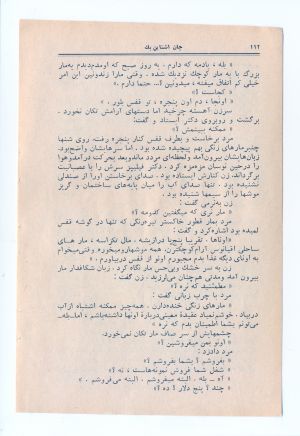 ۱۱۲ جان اشتاین بك
« بله ، یادمه که دارم . یه روز صبح که اومدم دیدم یه مار
بزرگ با یه مار کوچك نزدیك شده . وقتی مارا زندونین این امر
خیلی کم اتفاق میفته ، میدونین ؟... حتما دارم . »
« کجاست ؟ »
« اونجا ، دم اون پنجره ، تو قفس
سرزن آهسته چرخید اما دستهای آرامش تکان نخورد .
برگشت و روبروی دکتر ایستاد و گفت :
« ممکنه ببینمش ؟ »
مرد برخاست و بطرف قفس کنار پنجره رفت . روی شنها
چنبر مارهای زنگی بهم پیچیده شده بود . اما سرهایشان واضح بود .
زبان‌هاشان بیرون آمد و لحظه‌ای مردد ماند و بعد بحرکت درآمد و هوا
را درحین نوسان مزمزه کرد . دکتر فیلیپز سرش را با عصبانیت
برگرداند . زن کنارش ایستاده بود . صدای برخاستن اورا از صندلی
نشنیده بود . تنها صدای آب را میان پایه‌های ساختمان و گریز
موشها را از سیمها شنیده بود .
زن به‌نرمی گفت :
« مار نری که میگفتین کدومه ؟ »
مرد بمار قطور خاکستر تیره‌رنگی که تنها در گوشه قفس
لمیده بود اشاره کرد و گفت :
« اوناها . تقریبا پنج پا درازیشه . مال تکزاسه ، مار های
ساحلی اقیانوس آرام کوچکترن . همه موشهارو میخوره . وقتی میخوام
به اونای دیگه غذا بدم مجبورم اونو از قفس دربیاورم . »
زن به سر خشك و بی‌حس مار نگاه کرد . زبان شکافدار مار
بیرون آمد و مدتی همچنان می‌لرزید . زن گفت :
« مطمئنید که نره ؟ »
مرد با چرب زبانی گفت :
« مارهای زنگی خنده‌دارن . همه‌چیز ممکنه اشتباه ازآب
دربیاد . خوشم نمیاد عقیدهٔ معینی دربارهٔ اونها داشته‌باشم ، اما... بله...
می‌تونم بشما اطمینان بدم که نره »
چشمهایش از سر صاف مار تکان نمی‌خورد .
« اونو بمن میفروشین ؟ »
مرد داد زد :
« بفروشم ؟ بشما بفروشم ؟ »
« شغل شما فروش نمونه‌هاست ، نه ؟ »
« آه - بله . البته میفروشم . البته می‌فروشم . »
« چند ؟ پنج دلار ؟ ده ؟ »